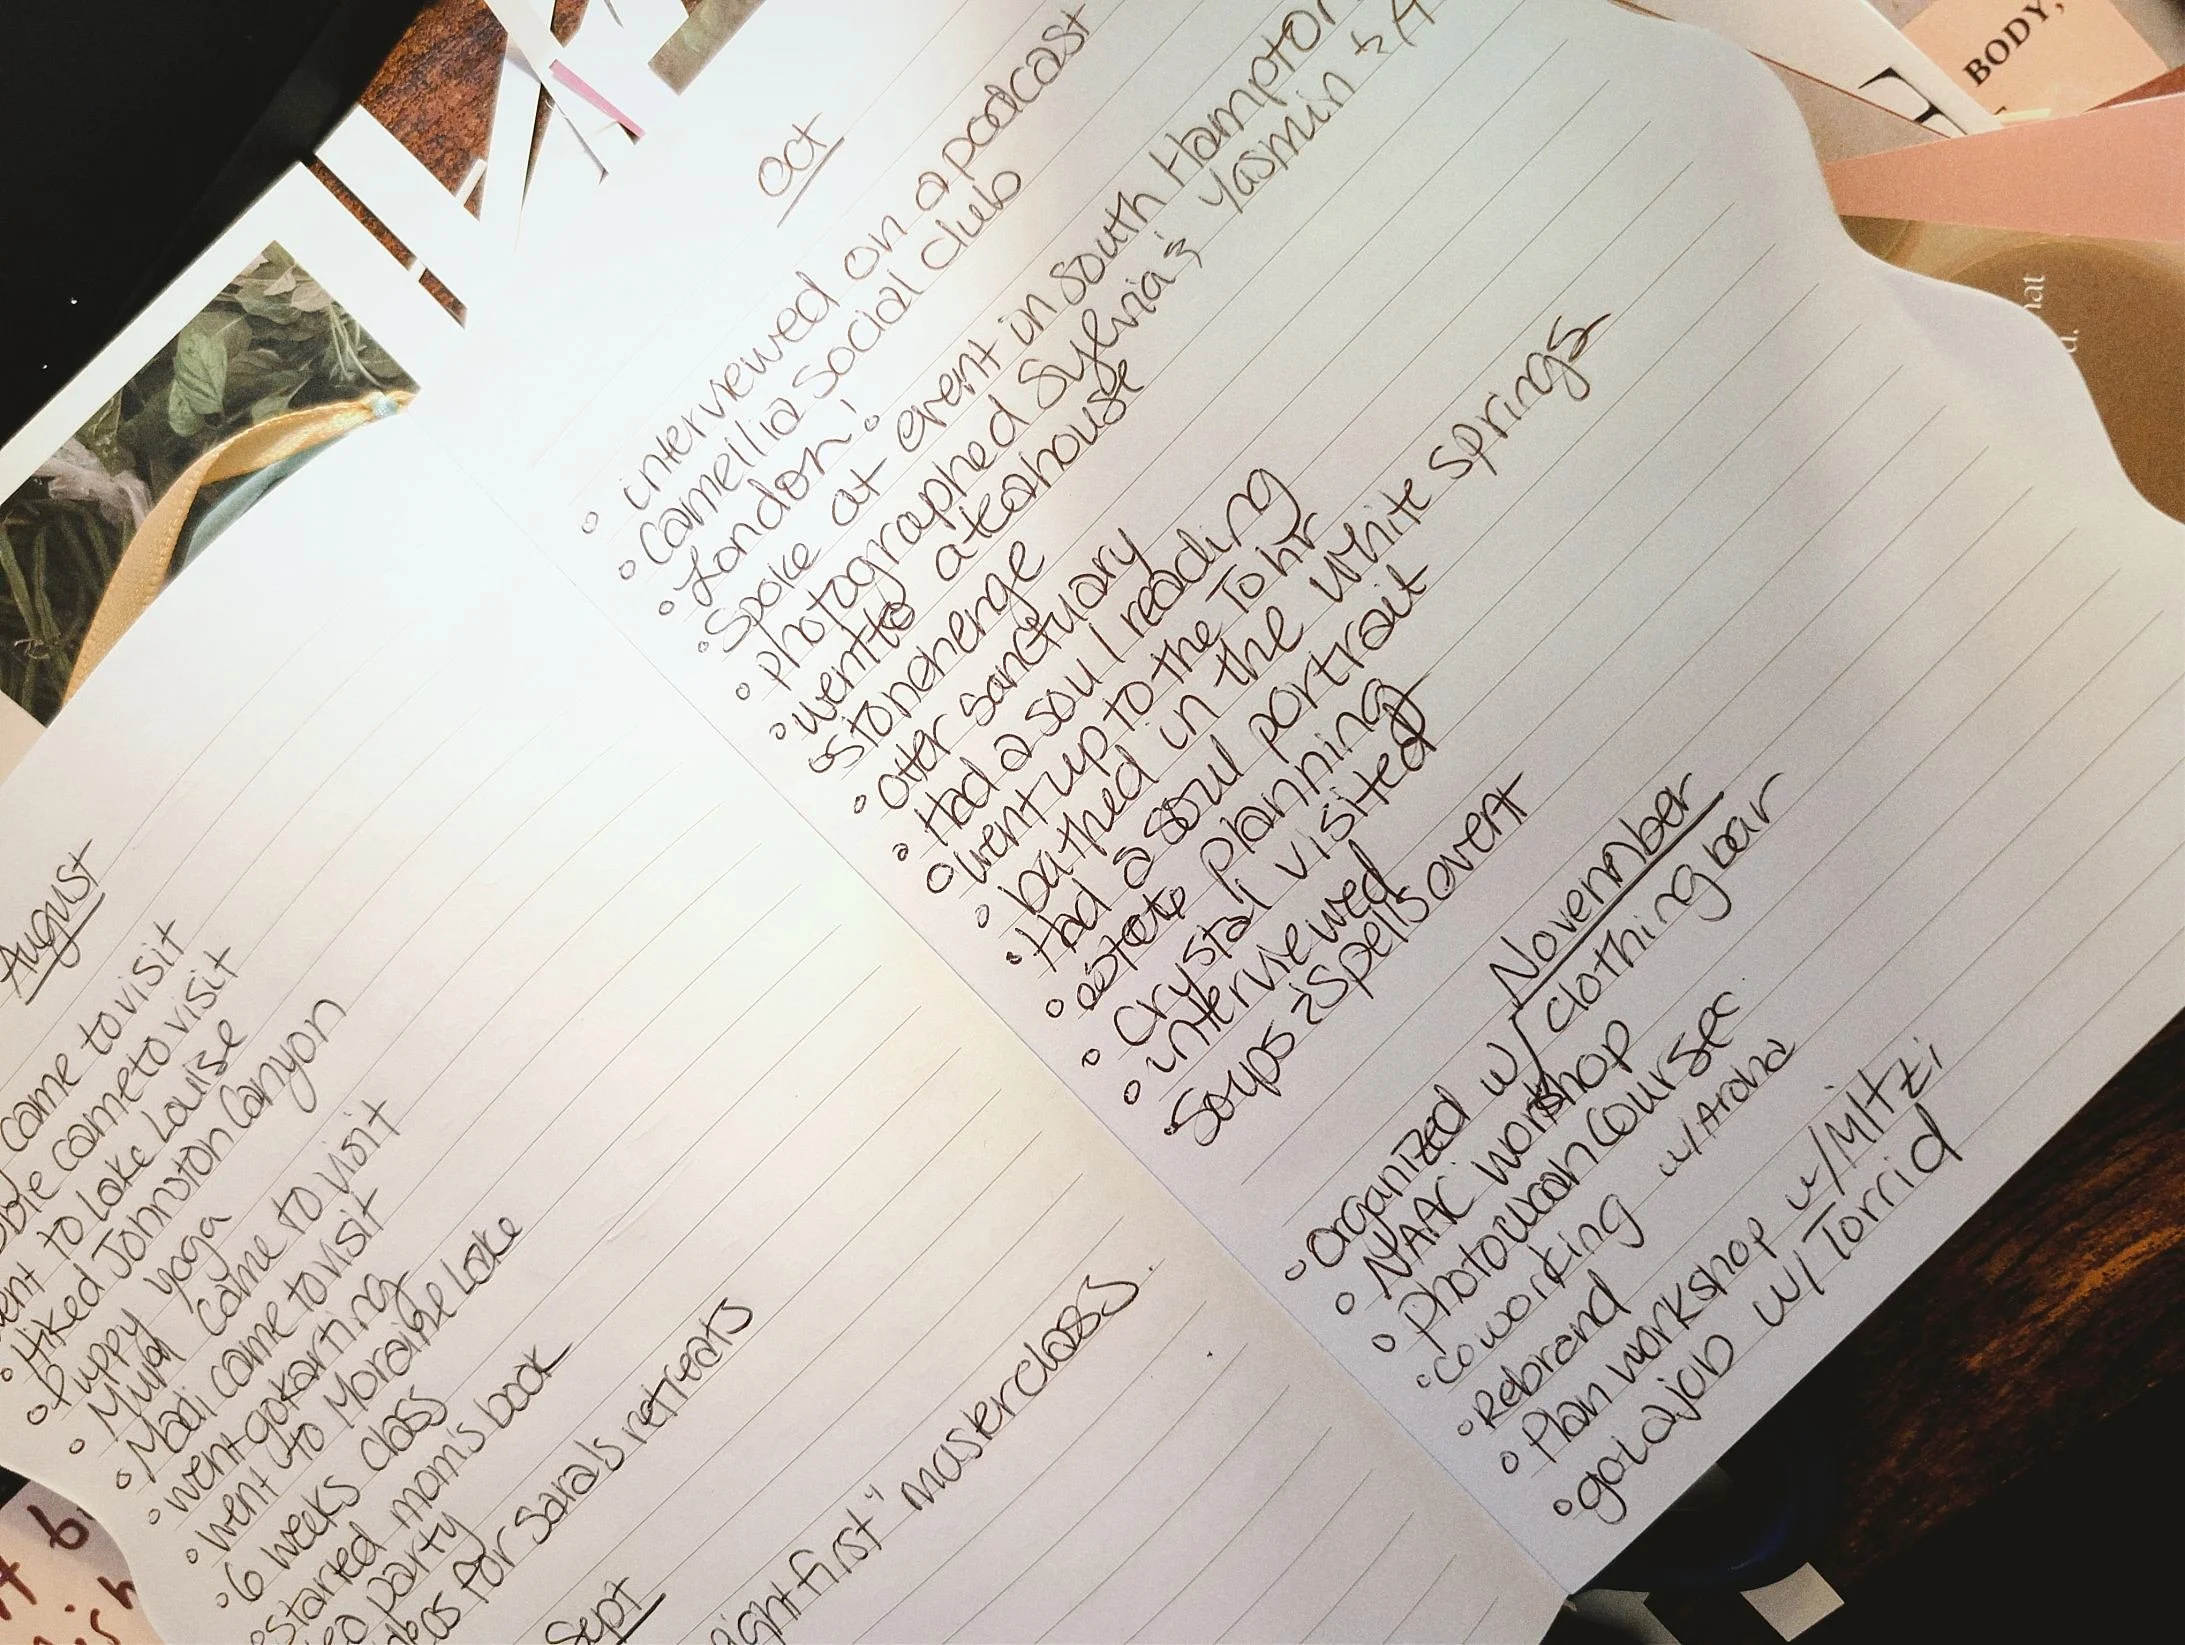 August
came to visit
came to visit
to Lake Louise
• Hiked Johnston Canyon
• Puppy yoga
• came to visit
• Madi came to visit
• went gokarting
• went to Moraine Lake
• 6 weeks class
started mom's book
party
for Sara's retreats
Sept
first" masterclass
Oct
• interviewed on a podcast
• Camellia Social club
• London!
• Spoke at event in South
• photographed Sylvia & Yasmin &
• went to a teahouse
• Stonehenge
• Otter Sanctuary
• Had a soul reading
• went up to the Tohr
• bathed in the White Springs
• Had a soul portrait
• estate planning
• Crystal visited
• interviewed
• Soups & Spells event
November
• Organized w/ clothing bar
• workshop
• Photo course
• coworking w/
• Rebrand
• Plan workshop w/ Mitzi
• got a job w/ Torrid
BODY,